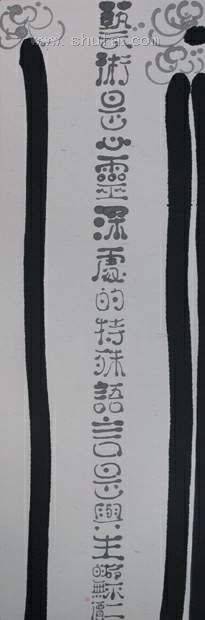 藝術是心靈深處的特殊語言是與生
shufa.com